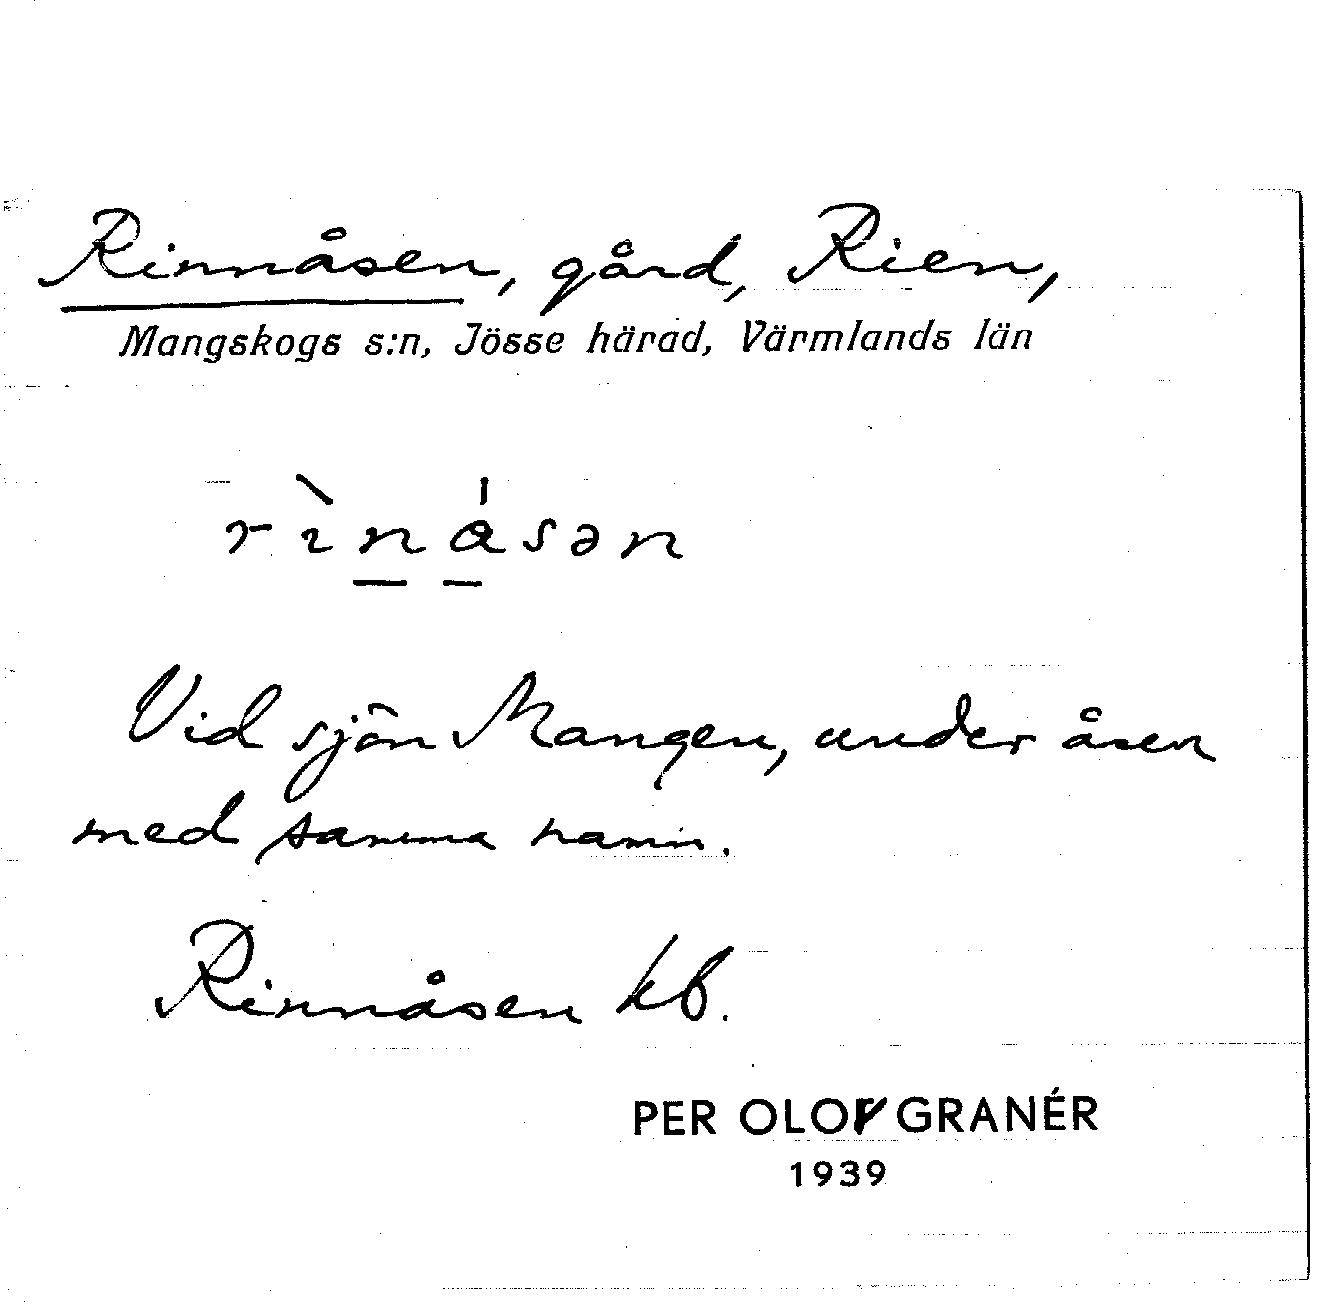 Rinnåsen, gård, Rien,
Mangskogs s:n, Jösse härad, Värmlands län
rìnásən
Vid sjön Mangen, under åsen
med samma namn.
Rinnåsen kb.
PER OLOV GRANÉR
1939